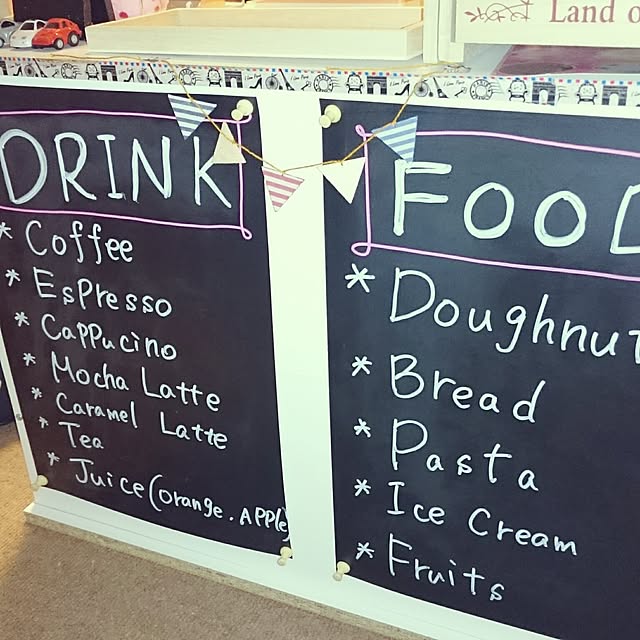 Land o
DRINK
* Coffee
* Espresso
* Cappucino
* Mocha Latte
* Caramel Latte
* Tea
* Juice (orange. APPle)
FOOD
* Doughnut
* Bread
* Pasta
* Ice Cream
* Fruits